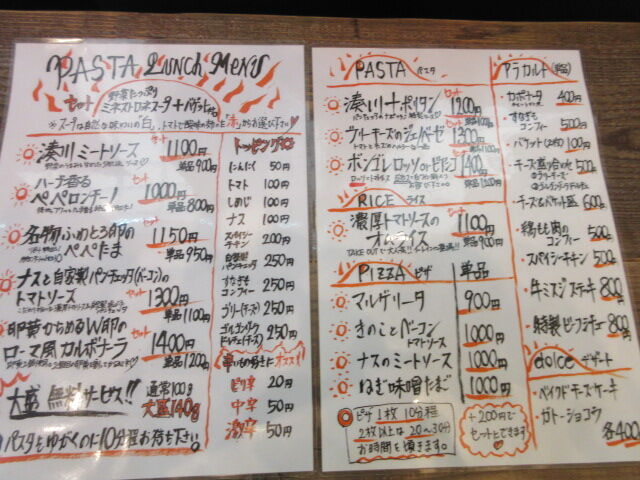 PASTA LUNCH MENU
セット
野菜たっぷり
ミネストロネスープ+バゲット付
※スープは自然な味わいの"白"、トマトで酸味の効いた"赤"からお選び下さい
湊川ミートソース
セット
1100円
単品900円
ハーブ香る
ペペロンチーノ
セット
1000円
単品800円
名物ふわとろ卵の
ぺぺたま
セット
1150円
単品950円
ナスと自家製パンチェッタ(ベーコン)の
トマトソース
セット
1300円
単品1100円
卵黄からめるW卵の
ローマ風カルボナーラ
セット
1400円
単品1200円
大盛 無料サービス!!
通常100g
大盛140g
パスタをゆがくのに10分程お待ち下さい。
トッピング
にんにく 50円
トマト 100円
しめじ 100円
ナス 100円
スパイシーチキン 200円
自家製パンチェッタ 250円
すなぎもコンフィー 250円
グリーン(チーズ) 250円
ゴルゴンゾラドルチェ(チーズ) 250円
辛いもの好きにオススメ
ピリ辛 20円
中辛 50円
激辛 50円
PASTA パスタ
湊川ナポリタン
セット
1200円
ブリーチーズのジェノベーゼ
セット
1300円
単品1100円
ボンゴレ ロッソ or ビアンコ
セット
1400円
単品1200円
RICE ライス
濃厚トマトソースの
オムライス
セット
1100円
単品900円
PIZZA ピザ 単品
マルゲリータ 900円
きのことベーコン
トマトソース
1000円
ナスのミートソース 1000円
ねぎ味噌たまご 1000円
ピザ1枚10分程
2枚以上は20~30分
お時間を頂きます。
+200円で
セットにできます
アラカルト(単品)
カポナータ 400円
すなぎも
コンフィー 500円
バゲット(2枚) 100円
チーズ盛り合わせ 500円
チーズ&バゲット盛 600円
鶏もも肉の
コンフィー 500円
スパイシーチキン 500円
牛ミスジステーキ 800円
特製ビーフシチュー 800円
dolce デザート
ベイクドチーズケーキ
ガトーショコラ
各400